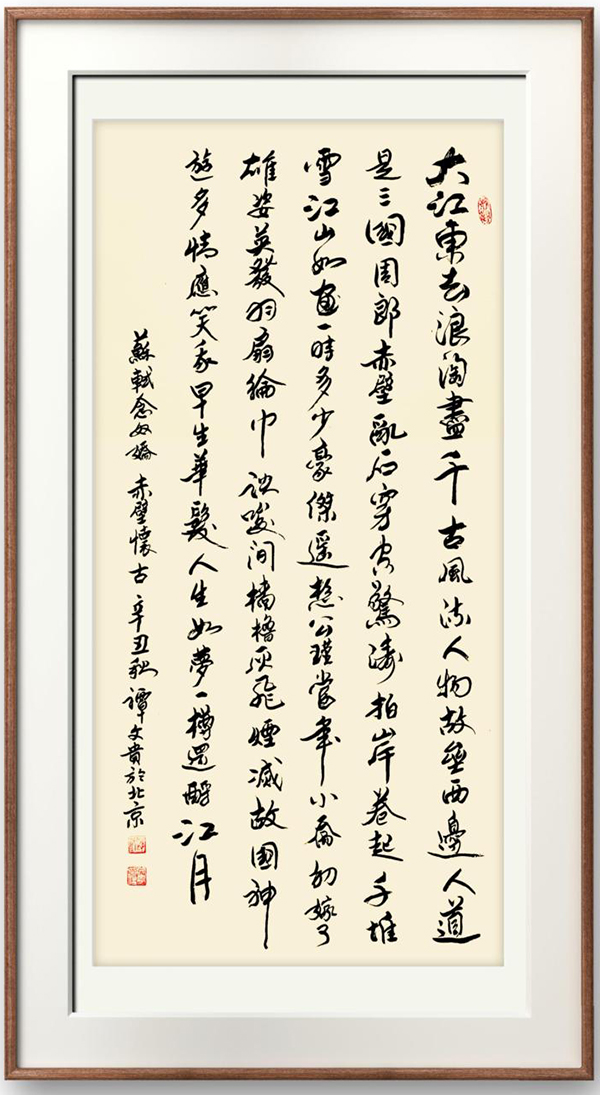 大江東去浪淘盡千古風流人物故壘西邊人道
是三國周郎赤壁亂石穿空驚濤拍岸卷起千堆
雪江山如畫一時多少豪傑遙想公瑾當年小喬初嫁了
雄姿英發羽扇綸巾談咲間檣櫓灰飛煙滅故國神
遊多情應笑我早生華髮人生如夢一樽還酹江月
蘇軾念奴嬌 赤壁懷古 辛丑秋 譚文貴於北京